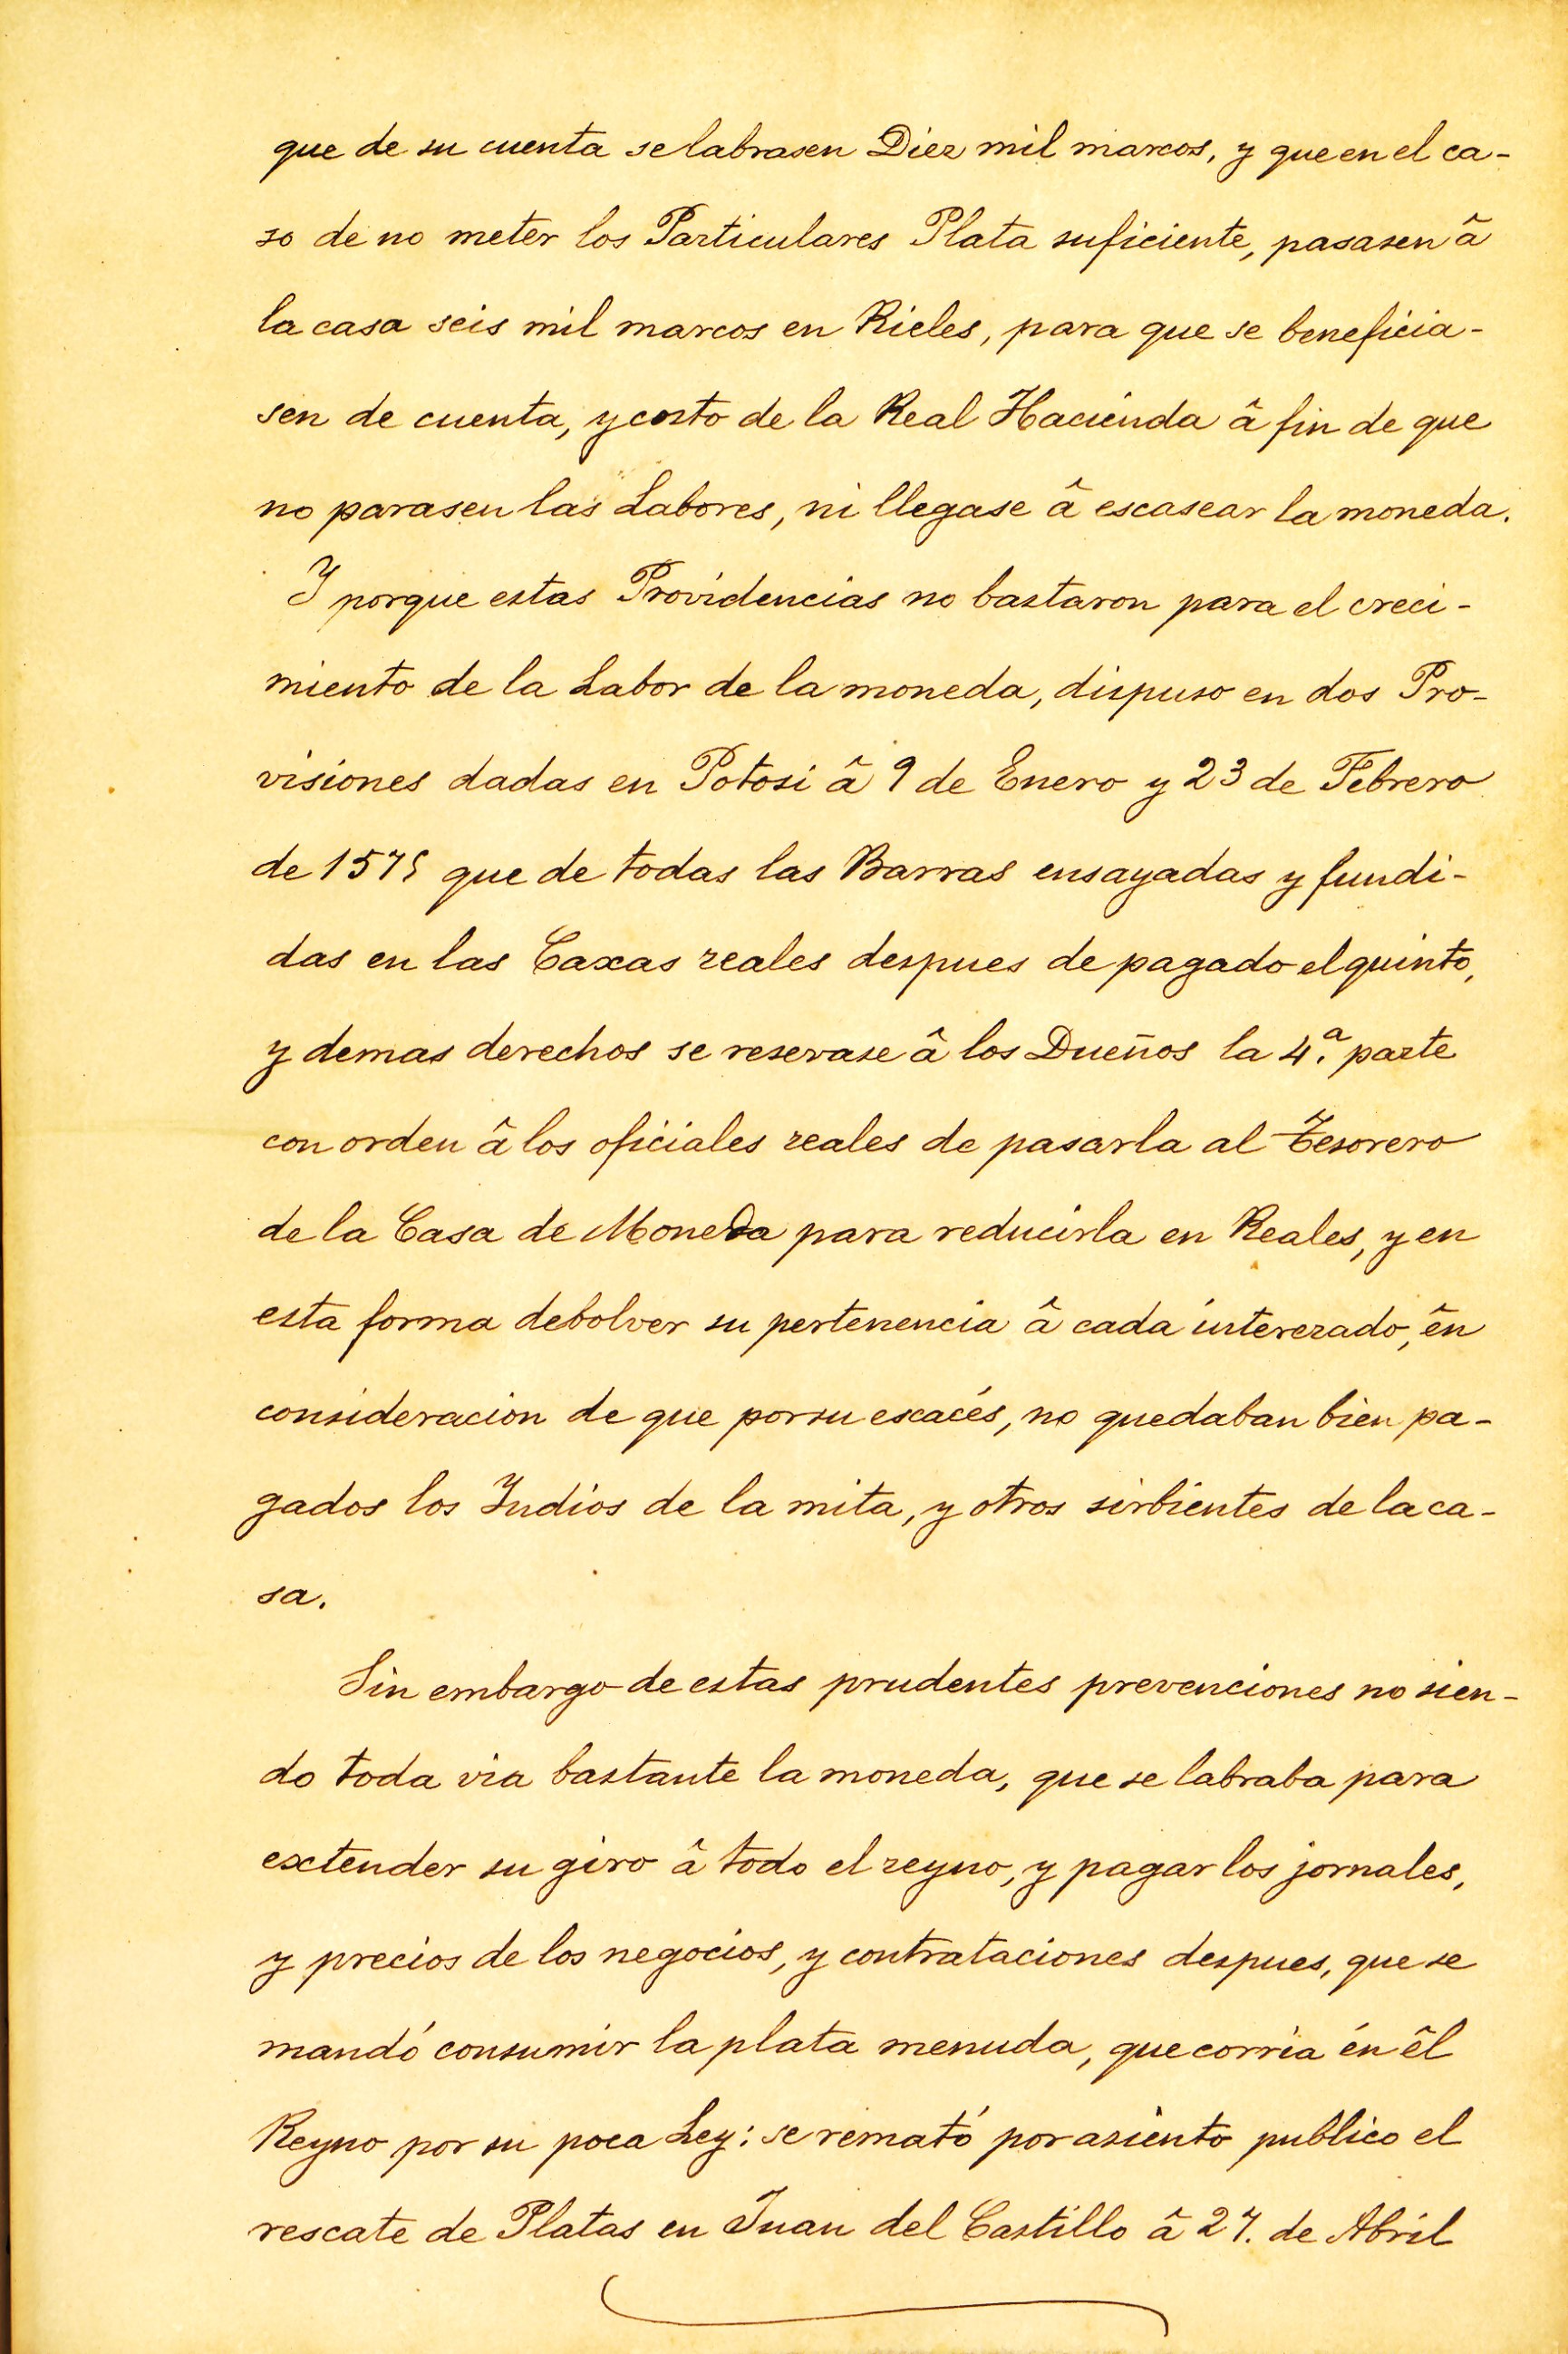 que de su cuenta se labrasen Diez mil marcos, y que en el ca-
so de no meter los Particulares Plata suficiente, pasasen â
la casa seis mil marcos en Rieles, para que se beneficia-
sen de cuenta, y costo de la Real Hacienda â fin de que
no parasen las Labores, ni llegase â escasear la moneda.
Y porque estas Providencias no bastaron para el creci-
miento de la Labor de la moneda, dispuso en dos Pro-
visiones dadas en Potosi â 9 de Enero y 23 de Febrero
de 1575 que de todas las Barras ensayadas y fundi-
das en las Caxas reales despues de pagado el quinto,
y demas derechos se reservase â los Dueños la 4.ª parte
con orden â los oficiales reales de pasarla al Tesorero
de la Casa de Moneda para reducirla en Reales, y en
esta forma debolver su pertenencia â cada interezado, ên
consideracion de que por su escacés, no quedaban bien pa-
gados los Indios de la mita, y otros sirbientes de la ca-
sa.
Sin embargo de estas prudentes prevenciones no sien-
do toda via bastante la moneda, que se labraba para
extender su giro â todo el reyno, y pagar los jornales,
y precios de los negocios, y contrataciones despues, que se
mandó consumir la plata menuda, que corria én êl
Reyno por su poca Ley: se remató por asiento publico el
rescate de Platas en Juan del Castillo â 27. de Abril